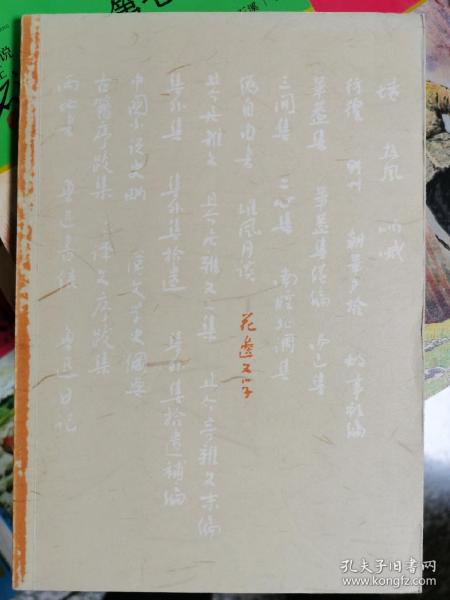 坟 热风 呐喊
彷徨 野草 朝华夕拾 故事新编
华盖集 华盖集续编 而已集
三闲集 二心集 南腔北调集
伪自由书 准风月谈 花边文学
且介亭杂文 且介亭杂文二集 且介亭杂文末编
集外集 集外集拾遗 集外集拾遗补编
中国小说史略 汉文学史纲要
古籍序跋集 译文序跋集
两地书 鲁迅书信 鲁迅日记
孔夫子旧书网
www.kongfz.com